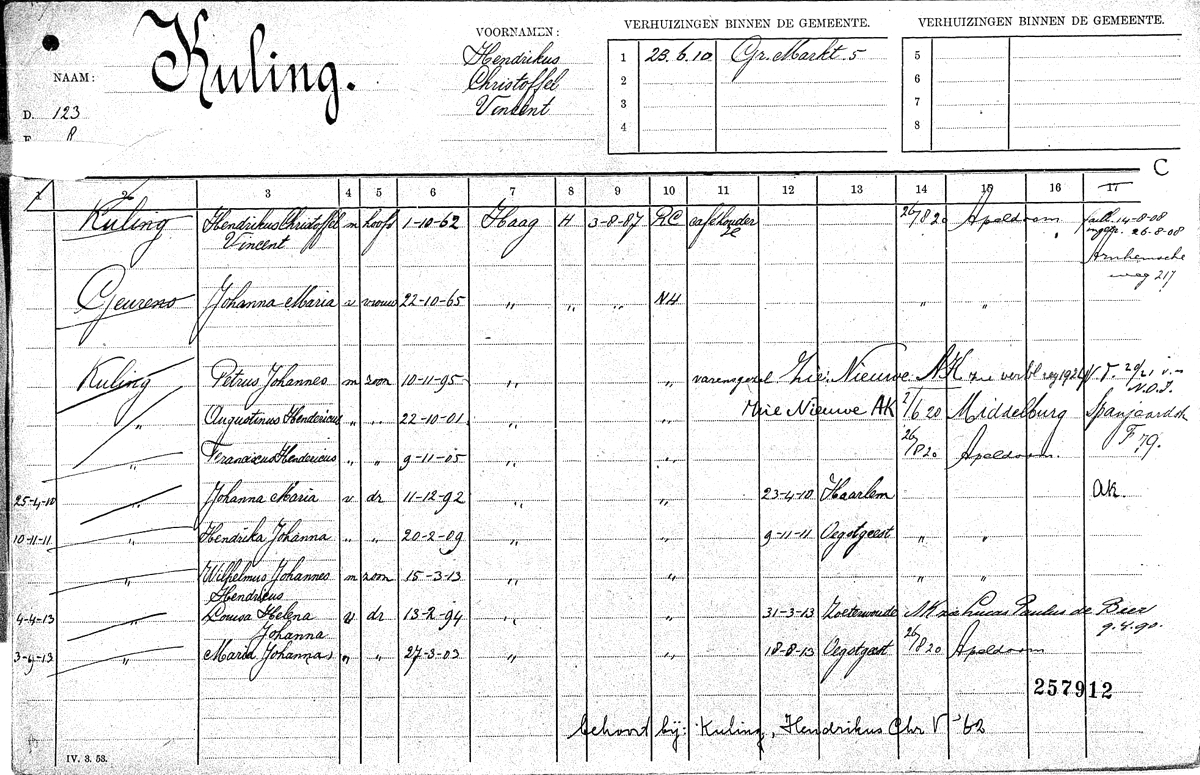 NAAM:
Kuling.
VOORNAMEN:
Hendrikus
Christoffel
Vincent
D. 123
VERHUIZINGEN BINNEN DE GEMEENTE.
1 23.6.10 Gr. Markt 5
2
3
4
VERHUIZINGEN BINNEN DE GEMEENTE.
5
6
7
8
C
1 2 3 4 5 6 7 8 9 10 11 12 13 14 15 16 17
Kuling Hendrikus Christoffel m hoofd 1-10-62 Haag H 3-8-87 RC caféhouder 26/8 20 Apeldoorn 14-8-08
Vincent 26-8-08
Arnhemsche
weg 217
Geurens Johanna Maria v vrouw 22-10-65 " " " NH " "
Kuling Petrus Johannes m zoon 10-11-95 " " varensgezel Zie: Nieuwe AK
" Augustinus Hendericus " " 22-10-01 " " Zie Nieuwe AK 2/6 20 Middelburg Spanjaardstr
F 79.
" Franciscus Hendericus " " 9-11-05 " " 26/8 20 Apeldoorn
25-4-10 " Johanna Maria v dr 11-12-92 " " 23-4-10 Haarlem AK.
10-11-11 " Hendrika Johanna " " 20-2-09 " " 9-11-11 Oegstgeest " "
" Wilhelmus Johannes m zoon 15-3-13 " " " "
Hendricus
9-4-13 " Louisa Helena v dr 13-2-94 " " 31-3-13 Zoeterwoude Lucas Paulus de Beer
Johanna 9.4.90.
3-9-13 " Maria Johanna " " 27-3-03 " " 18-8-13 Oegstgeest 26/8 20 Apeldoorn
257912
behoort bij: Kuling, Hendrikus Chr V '62
IV. 3. 53.